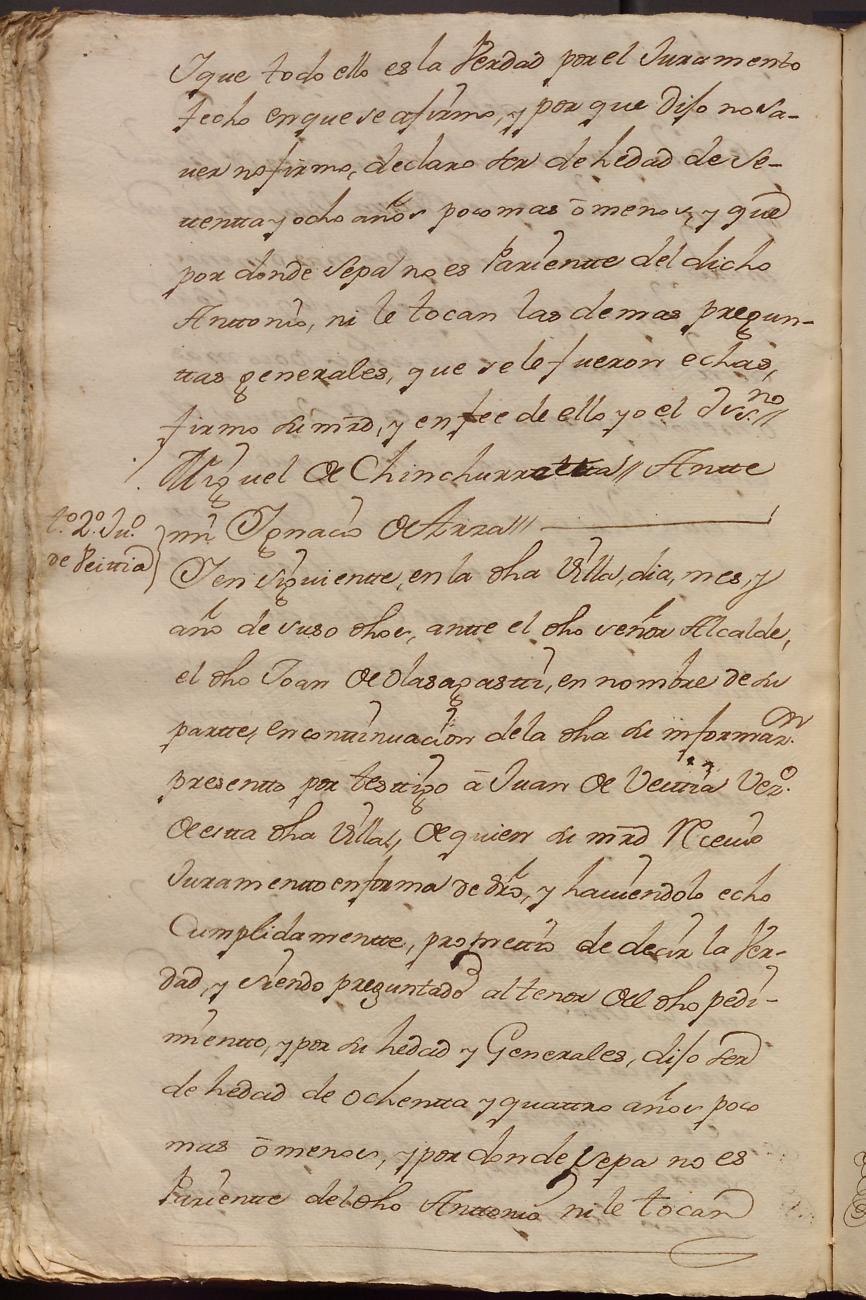 Y que todo ello es la Verdad por el Juramento
fecho en que se afirmo, y por que dijo no sa-
uer no firmo, declaro ser de hedad de se-
tentta y ocho años poco mas ō menos, y que
por donde sepa no es Parientte del dicho
Anttonio, ni le tocan las demas pregun-
ttas generales, que se le fueron echas,
firmo su mrd, y en fee de ello yo el Ess.no //
Miguel de Chinchurretta // Antte
mi Ygnacio de Arza // —
tº. 2º. Juº
de Veittia
Y en siguientte, en la dha Villa, dia, mes, y
año de suso dhos, antte el dho señor Alcalde,
el dho Joan de Olasagastti, en nombre de su
partte, en conttinuacion de la dha su informaz.on
presentto por testtigo ā Juan de Veittia Vezº.
de estta dha Villa, de quien su mrd Rceuio
Juramentto en forma de dro, y hauiendolo echo
Cumplidamentte, promettio de decir la Ver-
dad, y siendo preguntado al tenor del dho pedi-
mientto, y por su hedad y Generales, dijo ser
de hedad de ochentta y quattro años poco
mas ō menos, y por donde sepa no es
Parientte del dho Anttonio ni le tocan